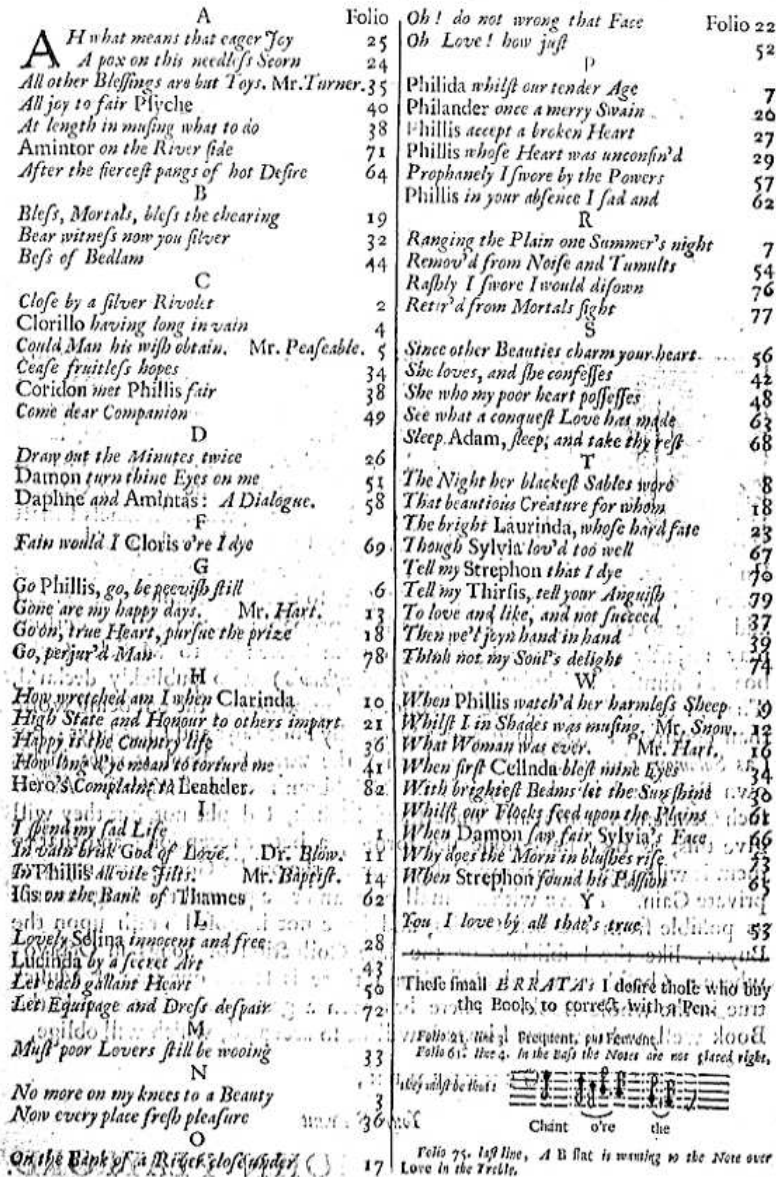 A Folio
AH what means that eager Joy 25
A pox on this needless Scorn 24
All other Blessings are but Toys. Mr. Turner. 35
All joy to fair Psyche 40
At length in musing what to do 38
Amintor on the River side 71
After the fiercest pangs of hot Desire 64
B
Bless, Mortals, bless the chearing 19
Bear witness now you silver 32
Bess of Bedlam 44
C
Close by a silver Rivolet 2
Clorillo having long in vain 4
Could Man his wish obtain. Mr. Peaseable. 5
Cease fruitless hopes 34
Coridon met Phillis fair 38
Come dear Companion 49
D
Draw out the Minutes twice 26
Damon turn thine Eyes on me 51
Daphne and Amintas: A Dialogue. 58
F
Fain would I Cloris o're I dye 69
G
Go Phillis, go, be peevish still 6
Gone are my happy days. Mr. Hart. 13
Go on, true Heart, pursue the prize 18
Go, perjur'd Man 78
H
How wretched am I when Clarinda 10
High State and Honour to others impart 21
Happy is the Country life 36
How long d'ye mean to torture me 41
Hero's Complaint to Leander. 82
I
I spend my sad Life 1
In vain brisk God of Love. Dr. Blow. 11
In Phillis all vile Jilts. Mr. Baptist. 14
Isis on the Bank of Thames 62
L
Lovely Selina innocent and free 28
Lucinda by a secret Art 43
Let each gallant Heart 50
Let Equipage and Dress despair 72
M
Must poor Lovers still be wooing 33
N
No more on my knees to a Beauty 3
Now every place fresh pleasure 36
O
On the Bank of a River close under 17
Oh! do not wrong that Face Folio 22
Oh Love! how just 52
P
Philida whilst our tender Age 7
Philander once a merry Swain 20
Phillis accept a broken Heart 27
Phillis whose Heart was unconfin'd 29
Prophanely I swore by the Powers 57
Phillis in your absence I sad and 62
R
Ranging the Plain one Summer's night 7
Remov'd from Noise and Tumults 54
Rashly I swore I would disown 76
Retir'd from Mortals sight 77
S
Since other Beauties charm your heart 56
She loves, and she confesses 42
She who my poor heart possesses 48
See what a conquest Love has made 63
Sleep Adam, sleep, and take thy rest 68
T
The Night her blackest Sables wore 8
That beautious Creature for whom 18
The bright Laurinda, whose hard fate 23
Though Sylvia lov'd too well 67
Tell my Strephon that I dye 70
Tell my Thirsis, tell your Anguish 79
To love and like, and not succeed 37
Then we'l joyn hand in hand 39
Think not my Soul's delight 74
W
When Phillis watch'd her harmless Sheep 9
Whilst I in Shades was musing. Mr. Snow. 12
What Woman was ever. Mr. Hart. 16
When first Celinda blest mine Eyes 34
With brightest Beams let the Sun shine 30
Whilst our Flocks feed upon the Plains 61
When Damon saw fair Sylvia's Face 66
Why does the Morn in blushes rise 73
When Strephon found his Passion 65
Y
You I love by all that's true 53
These small ERRATA's I desire those who buy
the Book, to correct with a Pen.
Folio 21. line 3. Frequent, put Fervent.
Folio 61. line 4. In the Bass the Notes are not placed right,
they must be thus:
Chant o're the
Folio 75. last line, A B flat is wanting to the Note over
Love in the Treble.